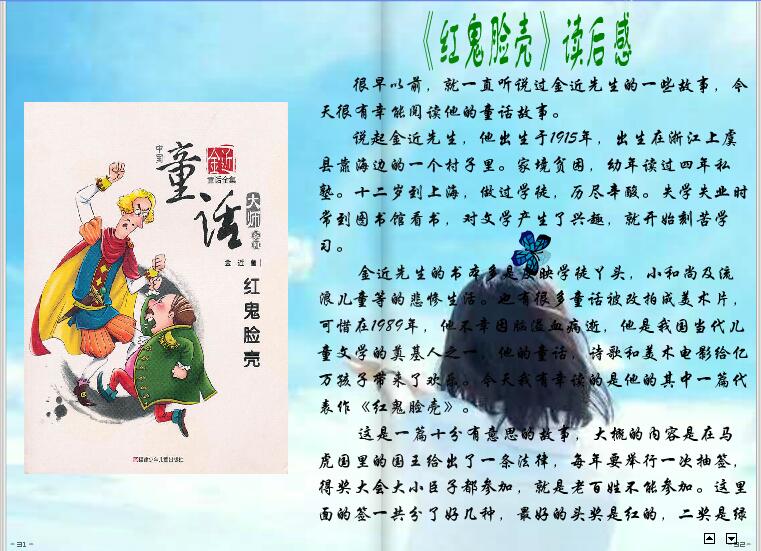 中国
童话
大师
金近
童话全集
金近 著
红鬼脸壳
福建少年儿童出版社
- 31 -
《红鬼脸壳》读后感
很早以前，就一直听说过金近先生的一些故事，今
天很有幸能阅读他的童话故事。
说起金近先生，他出生于1915年，出生在浙江上虞
县靠海边的一个村子里。家境贫困，幼年读过四年私
塾。十二岁到上海，做过学徒，历尽辛酸。失学失业时
常到图书馆看书，对文学产生了兴趣，就开始刻苦学
习。
金近先生的书本多是反映学徒丫头，小和尚及流
浪儿童等的悲惨生活。也有很多童话被改拍成美术片，
可惜在1989年，他不幸因脑溢血病逝，他是我国当代儿
童文学的奠基人之一，他的童话，诗歌和美术电影给亿
万孩子带来了欢乐。今天我有幸读的是他的其中一篇代
表作《红鬼脸壳》。
这是一篇十分有意思的故事，大概的内容是在马
虎国里的国王给出了一条法律，每年要举行一次抽签，
得奖大会大小臣子都参加，就是老百姓不能参加。这里
面的签一共分了好几种，最好的头奖是红的，二奖是绿
- 32 -